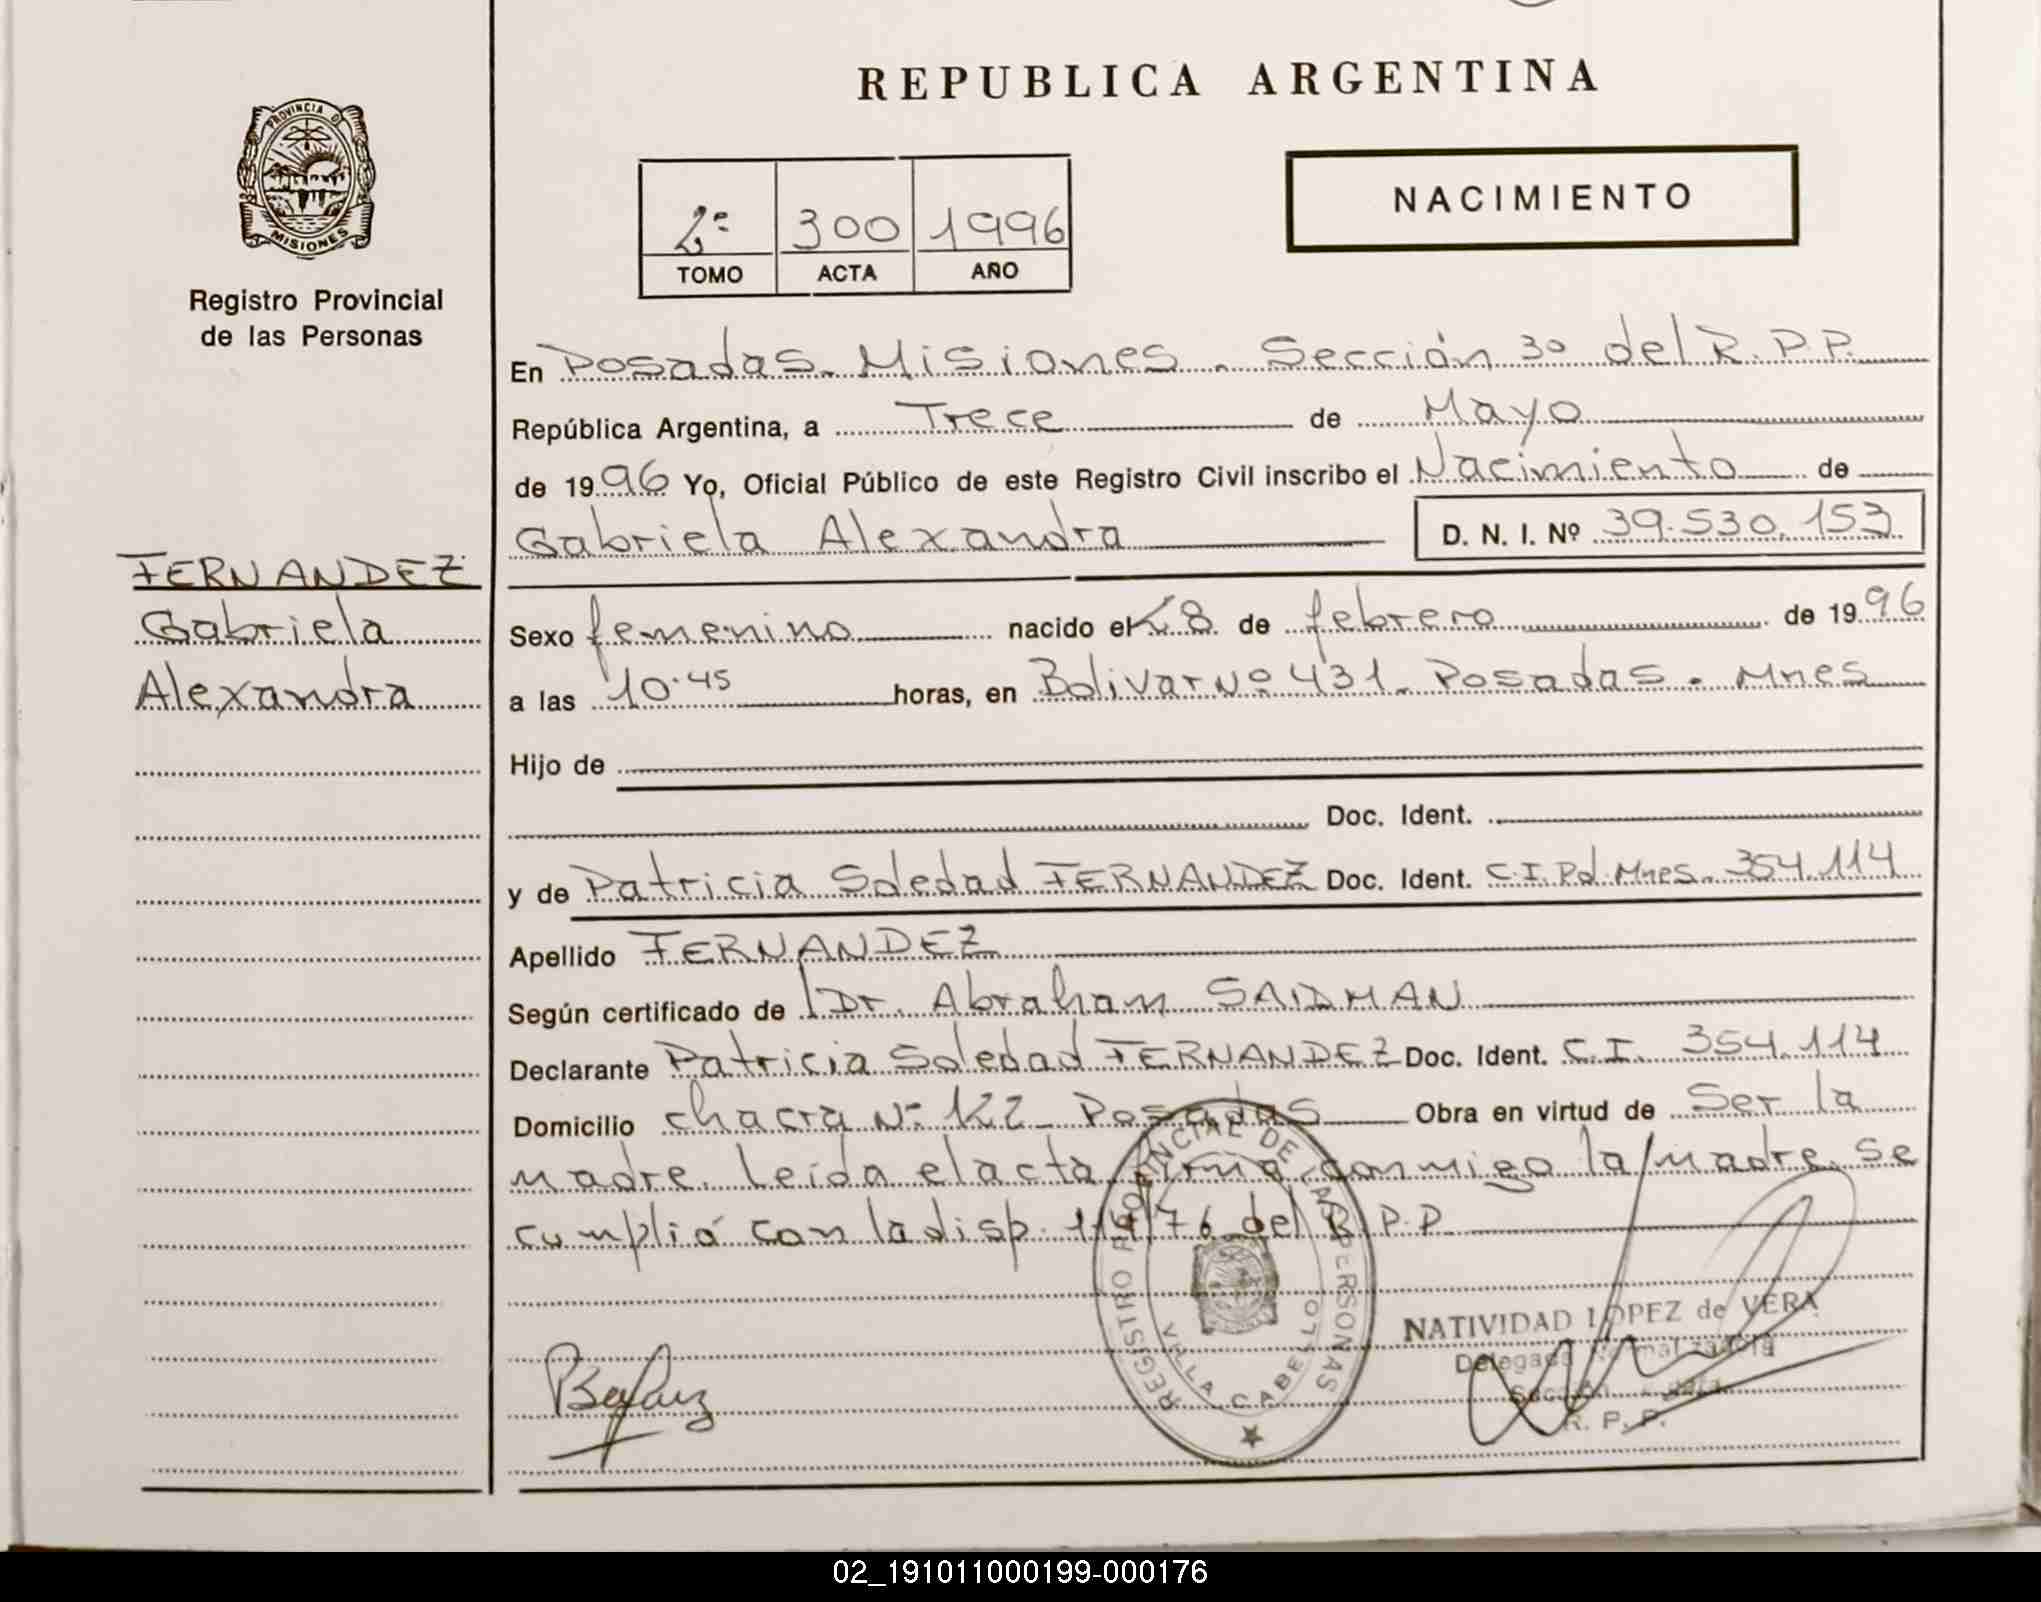 PROVINCIA DE
MISIONES
Registro Provincial
de las Personas
FERNANDEZ
Gabriela
Alexandra
REPUBLICA ARGENTINA
NACIMIENTO
2º 300 1996
TOMO ACTA AÑO
En Posadas. Misiones. Sección 3º del R.P.P.
República Argentina, a Trece de Mayo
de 1996 Yo, Oficial Público de este Registro Civil inscribo el Nacimiento de
Gabriela Alexandra D. N. I. Nº 39.530.153
Sexo femenino nacido el 28 de febrero de 1996
a las 10.45 horas, en Bolivar Nº 431. Posadas. Mnes
Hijo de
Doc. Ident.
y de Patricia Soledad FERNANDEZ Doc. Ident. C.I. Pol. Mnes. 354.114
Apellido FERNANDEZ
Según certificado de Dr. Abraham SAIDMAN
Declarante Patricia Soledad FERNANDEZ Doc. Ident. C.I. 354.114
Domicilio chacra Nº Posadas Obra en virtud de Ser la
madre. Leída el acta firma conmigo la madre. se
cumplió con la disp. 114/76 del R.P.P.
REGISTRO PROVINCIAL DE LAS PERSONAS
VILLA CABELLO
NATIVIDAD LOPEZ de VERA
Delegada
R. P. P.
02_191011000199-000176